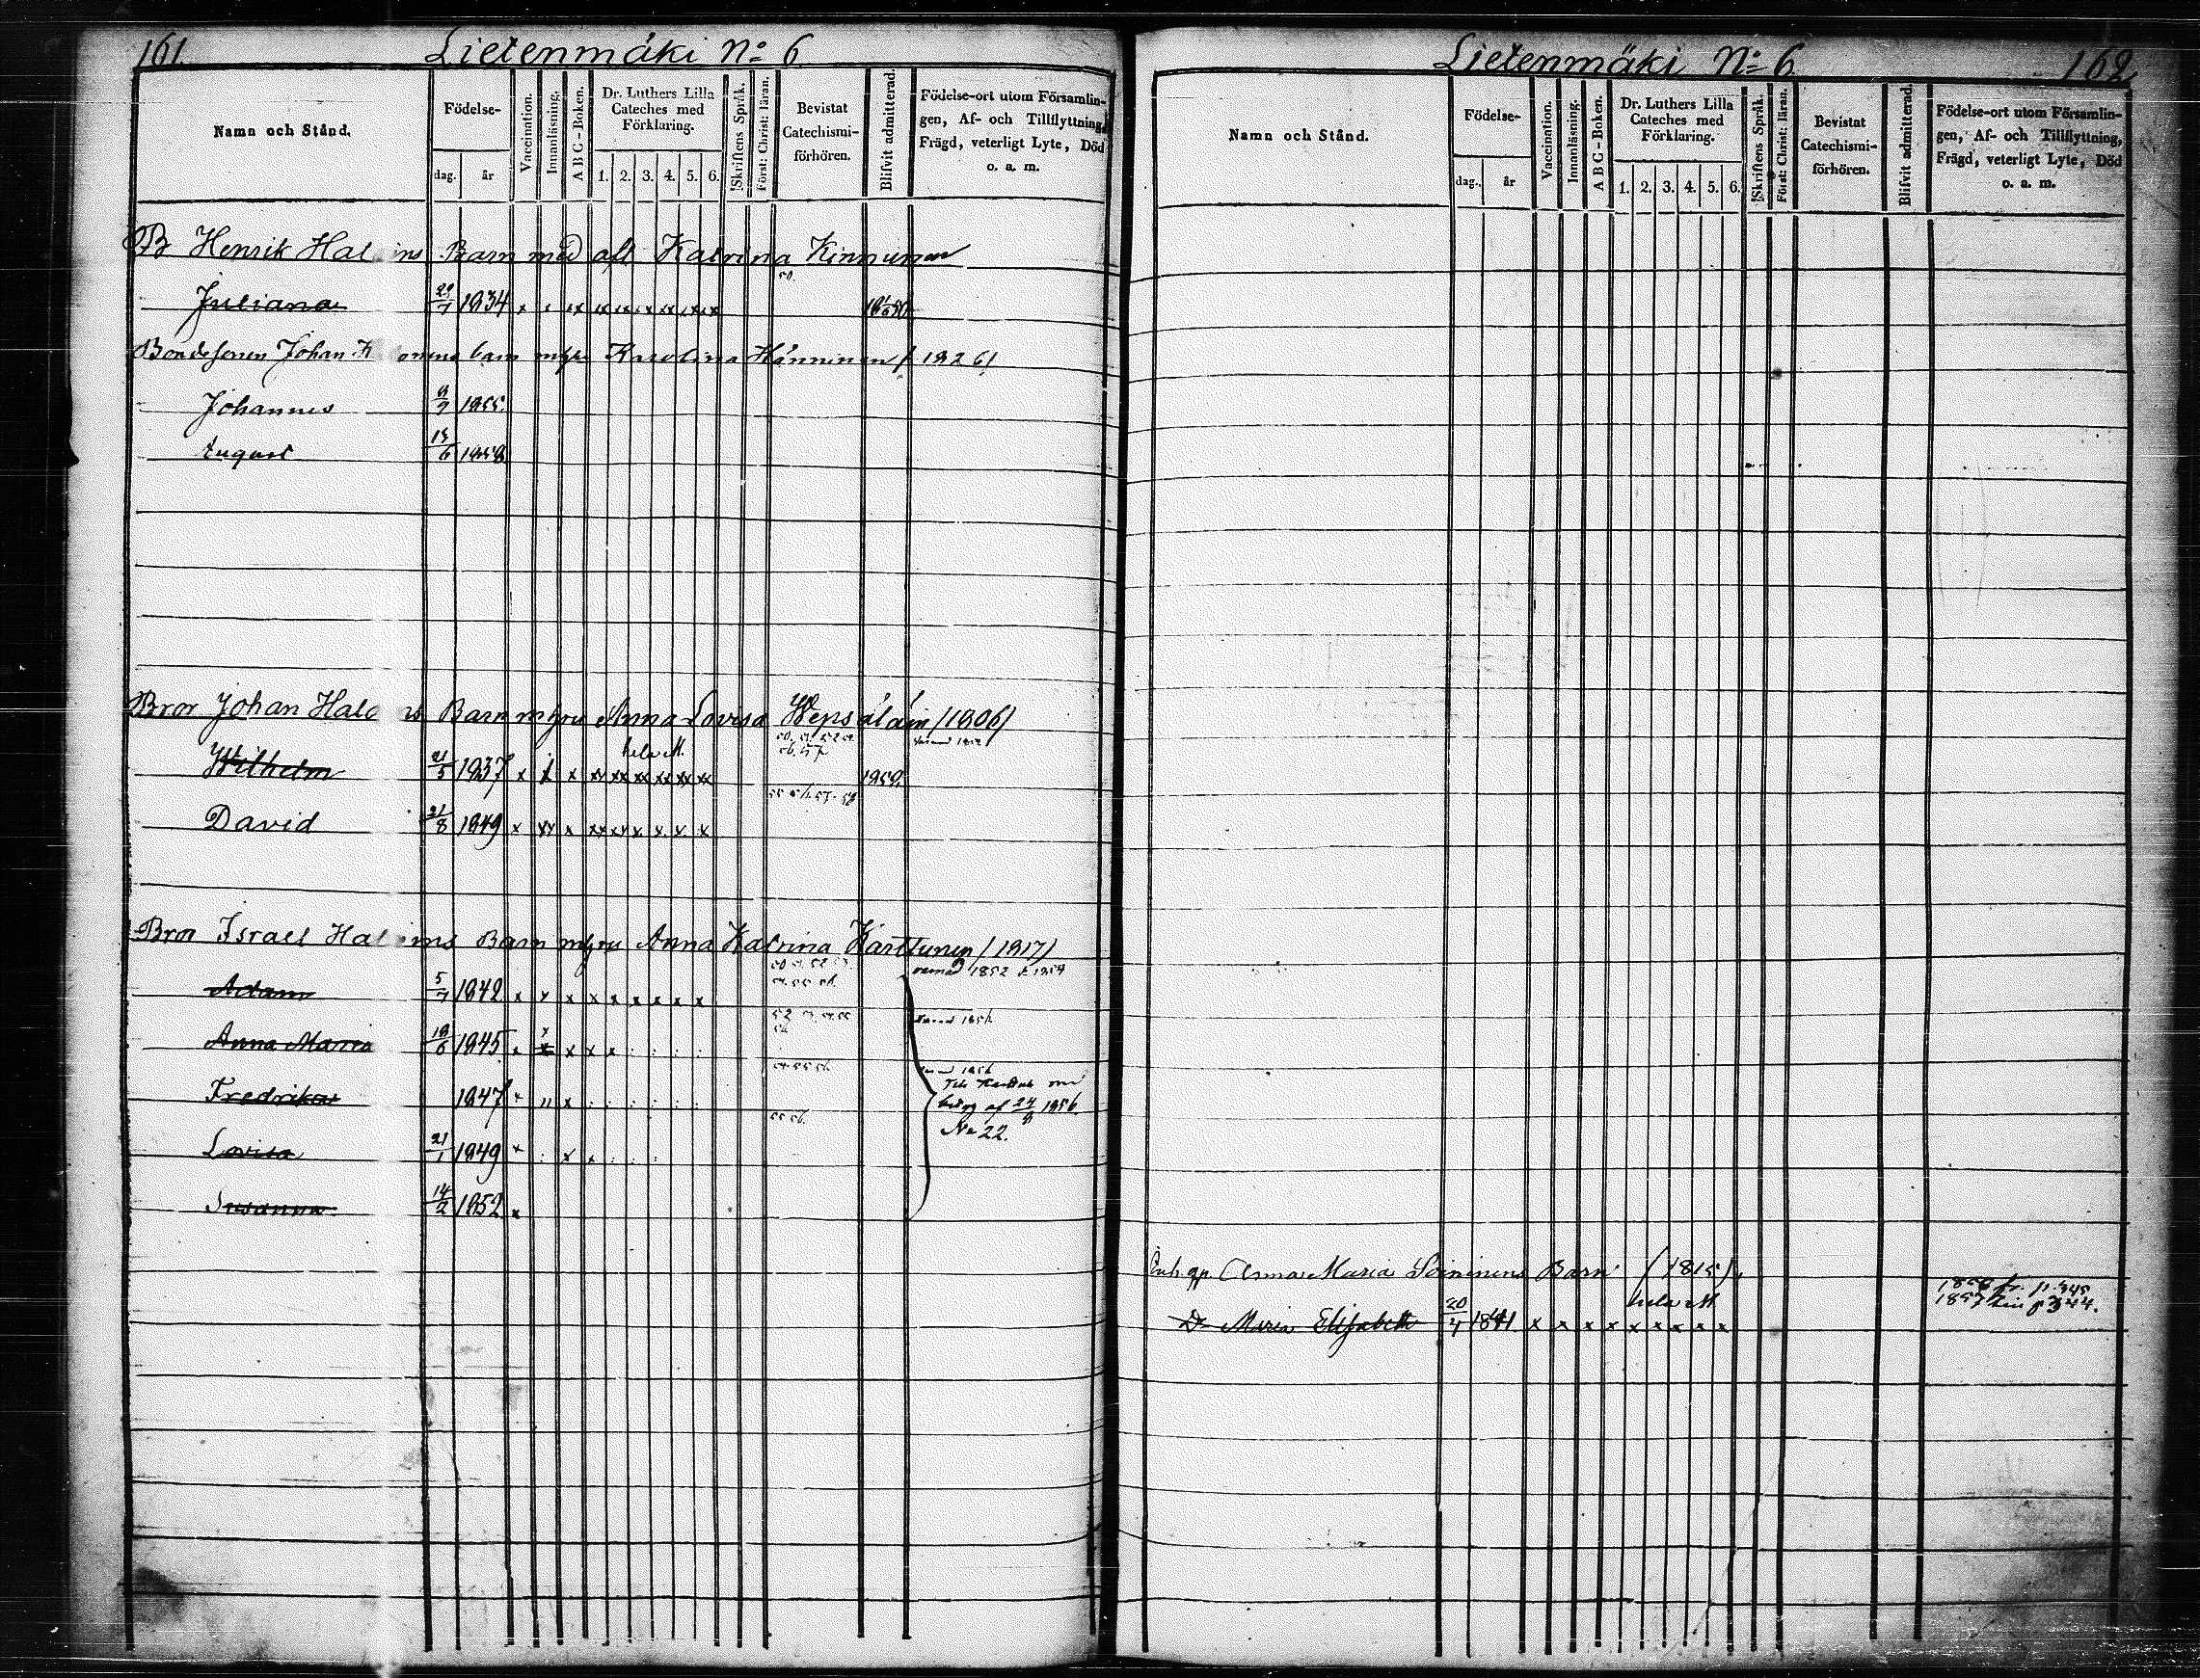 161.
Lietenmäki No 6.
Namn och Stånd.
Födelse-
dag. år
Vaccination.
Innanläsning.
A B C-Boken.
Dr. Luthers Lilla
Cateches med
Förklaring.
1. 2. 3. 4. 5. 6.
Skriftens Språk.
Först: Christ: läran.
Bevistat
Catechismi-
förhören.
Blifvit admitterad.
Födelse-ort utom Församlin-
gen, Af- och Tillflyttning,
Frägd, veterligt Lyte, Död
o. a. m.
B Henrik Hal ins Barn med afl Katrina Kinnunen
50.
Juliana 29/7 1834 x x x x x x x x x
Bondesonen Johan barn m hru Karolina Hänninen / 1826/
Johannes 9/9 1855.
August 15/6 1858
Bror Johan Halo s Barn m hru Anna Lovisa Wepsäläin /1806/
hela M.
Wilhelm 21/5 1837 x x x xx xx xx xx xx xx 1859.
David 21/8 1849 x xx x xx xx x x x x
Bror Israel Hal ens Barn m hru Anna Katrina Karttunen /1817/
1852 1854
Adam 5/7 1842 x x x x x x x x x
Anna Maria 18/6 1845 x x x x x
Fredrika 1847 x x
af 24/8 1856.
No 22.
55 56.
Lovisa 21/1 1849 x x x
Susanna 14/2 1852 x
Lietenmäki No 6.
162.
Namn och Stånd.
Födelse-
dag. år
Vaccination.
Innanläsning.
A B C-Boken.
Dr. Luthers Lilla
Cateches med
Förklaring.
1. 2. 3. 4. 5. 6.
Skriftens Språk.
Först: Christ: läran.
Bevistat
Catechismi-
förhören.
Blifvit admitterad.
Födelse-ort utom Församlin-
gen, Af- och Tillflyttning,
Frägd, veterligt Lyte, Död
o. a. m.
Anna Maria Soininens Barn (1815).
hela M
D Maria Elisabeth 20/4 1841. x x x x x x x x x